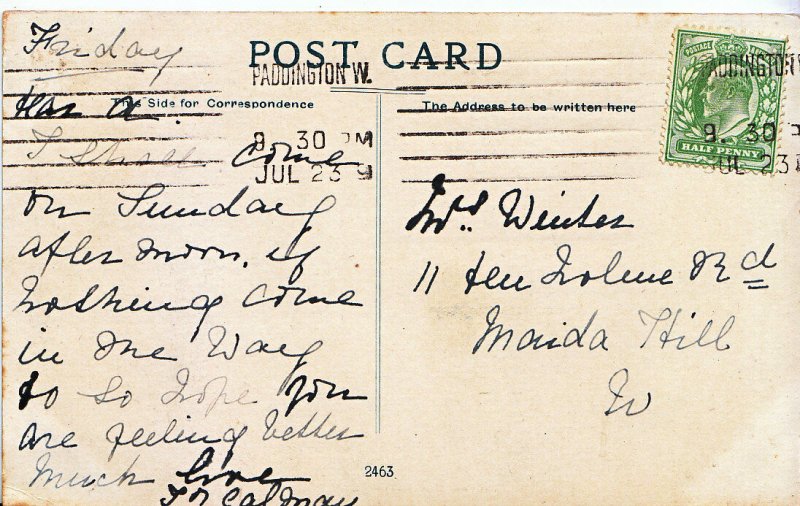 Friday
POST CARD
PADDINGTON W.
9. 30 PM
JUL 23 9
This Side for Correspondence
The Address to be written here
POSTAGE
HALF PENNY
PADDINGTON
9. 30
JUL 23
I shall come
on Sunday
after noon, if
nothing come
in the Way
to so hope you
are feeling better
much love
Mrs. Winter
11 Rd
Maida Hill
W
2463